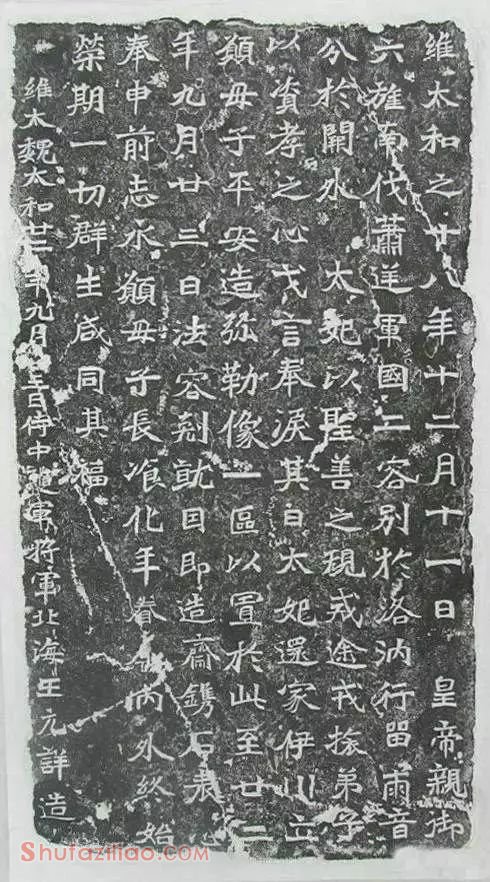 維太和之十八年十二月十一日 皇帝親御
六旌南伐蕭逆軍國二容別於洛汭行留兩音
分於闕外 太妃以聖善之規戒途戎旅弟子
以資孝之心戈言奉淚其日太妃還家伊川立
願母子平安造弥勒像一區以置於此至廿二
年九月廿三日法容刻就因即造齋鐫石表心
奉申前志永願母子長飡化年眷內外終始
榮期一切群生咸同其福
維太魏太和廿二年九月廿三日侍中護軍將軍北海王元詳造
Shufaziliao.com